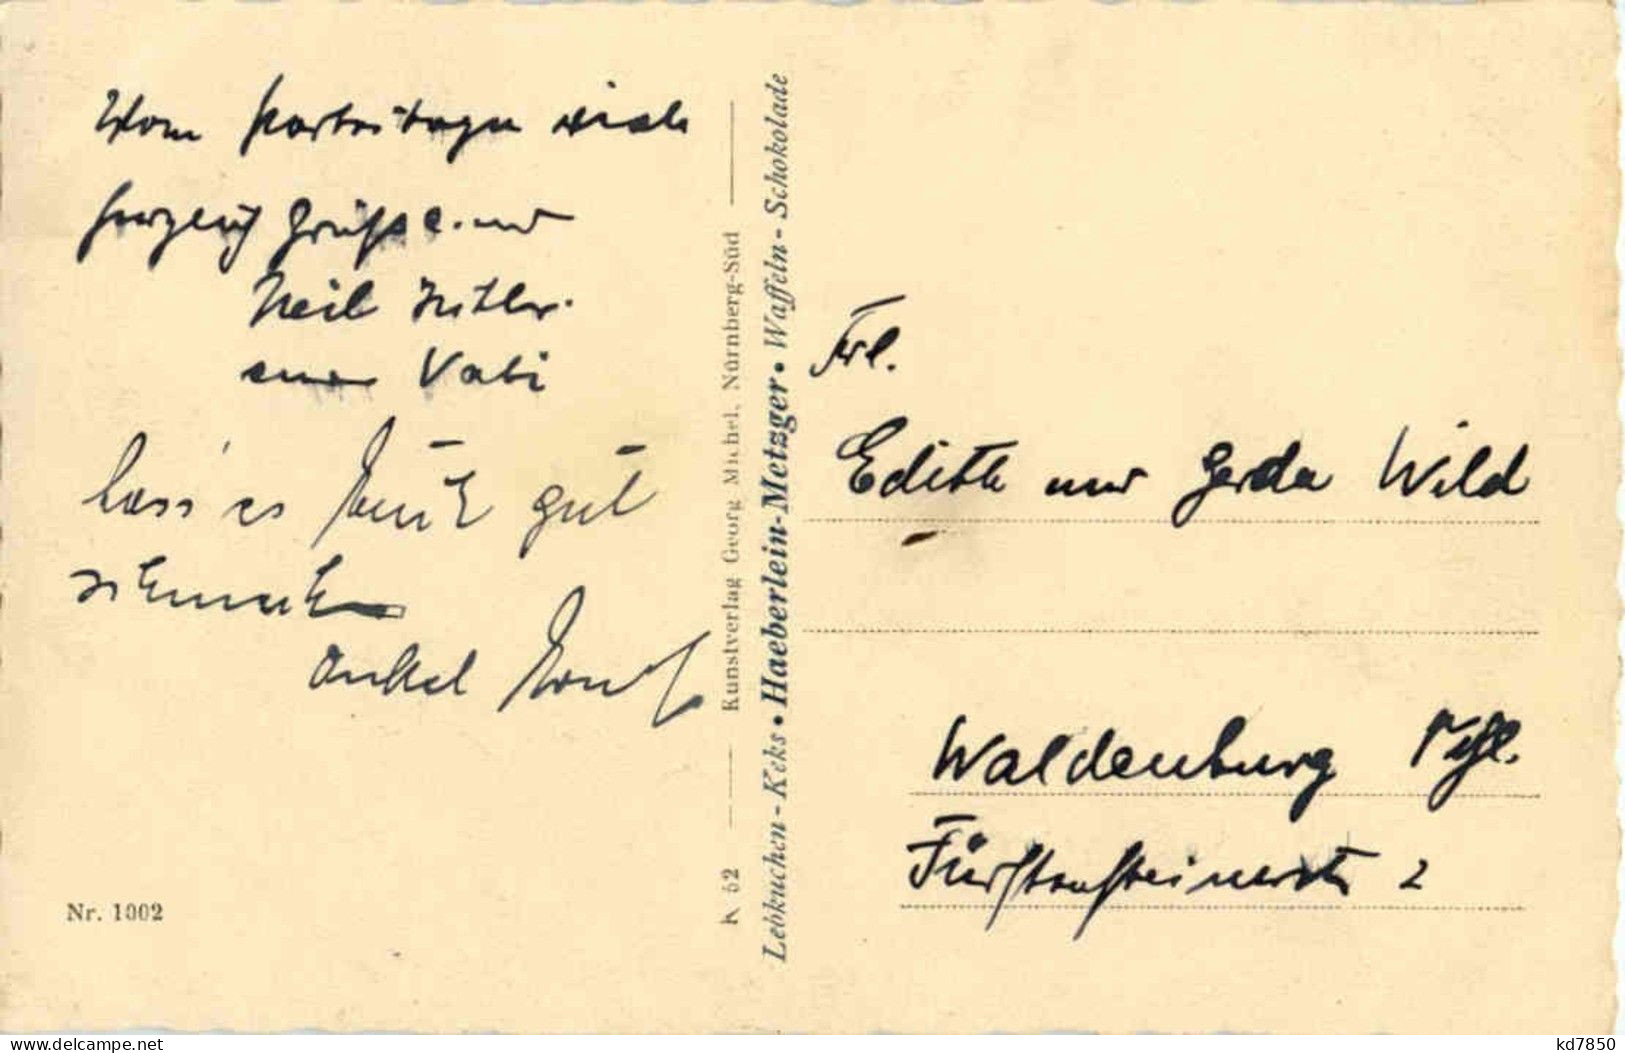 Vom Parteitage viele
herzlich Grüße und
Heil Hitler.
euer Vati
Lass es Euch gut
schmecken
Onkel
Nr. 1002
K 52 Kunstverlag Georg Michel, Nürnberg-Süd
Lebkuchen - Keks • Haeberlein-Metzger • Waffeln - Schokolade
Frl.
Edith und Gerda Wild
Waldenburg Schl.
Fürstensteinerstr 2
kd7850